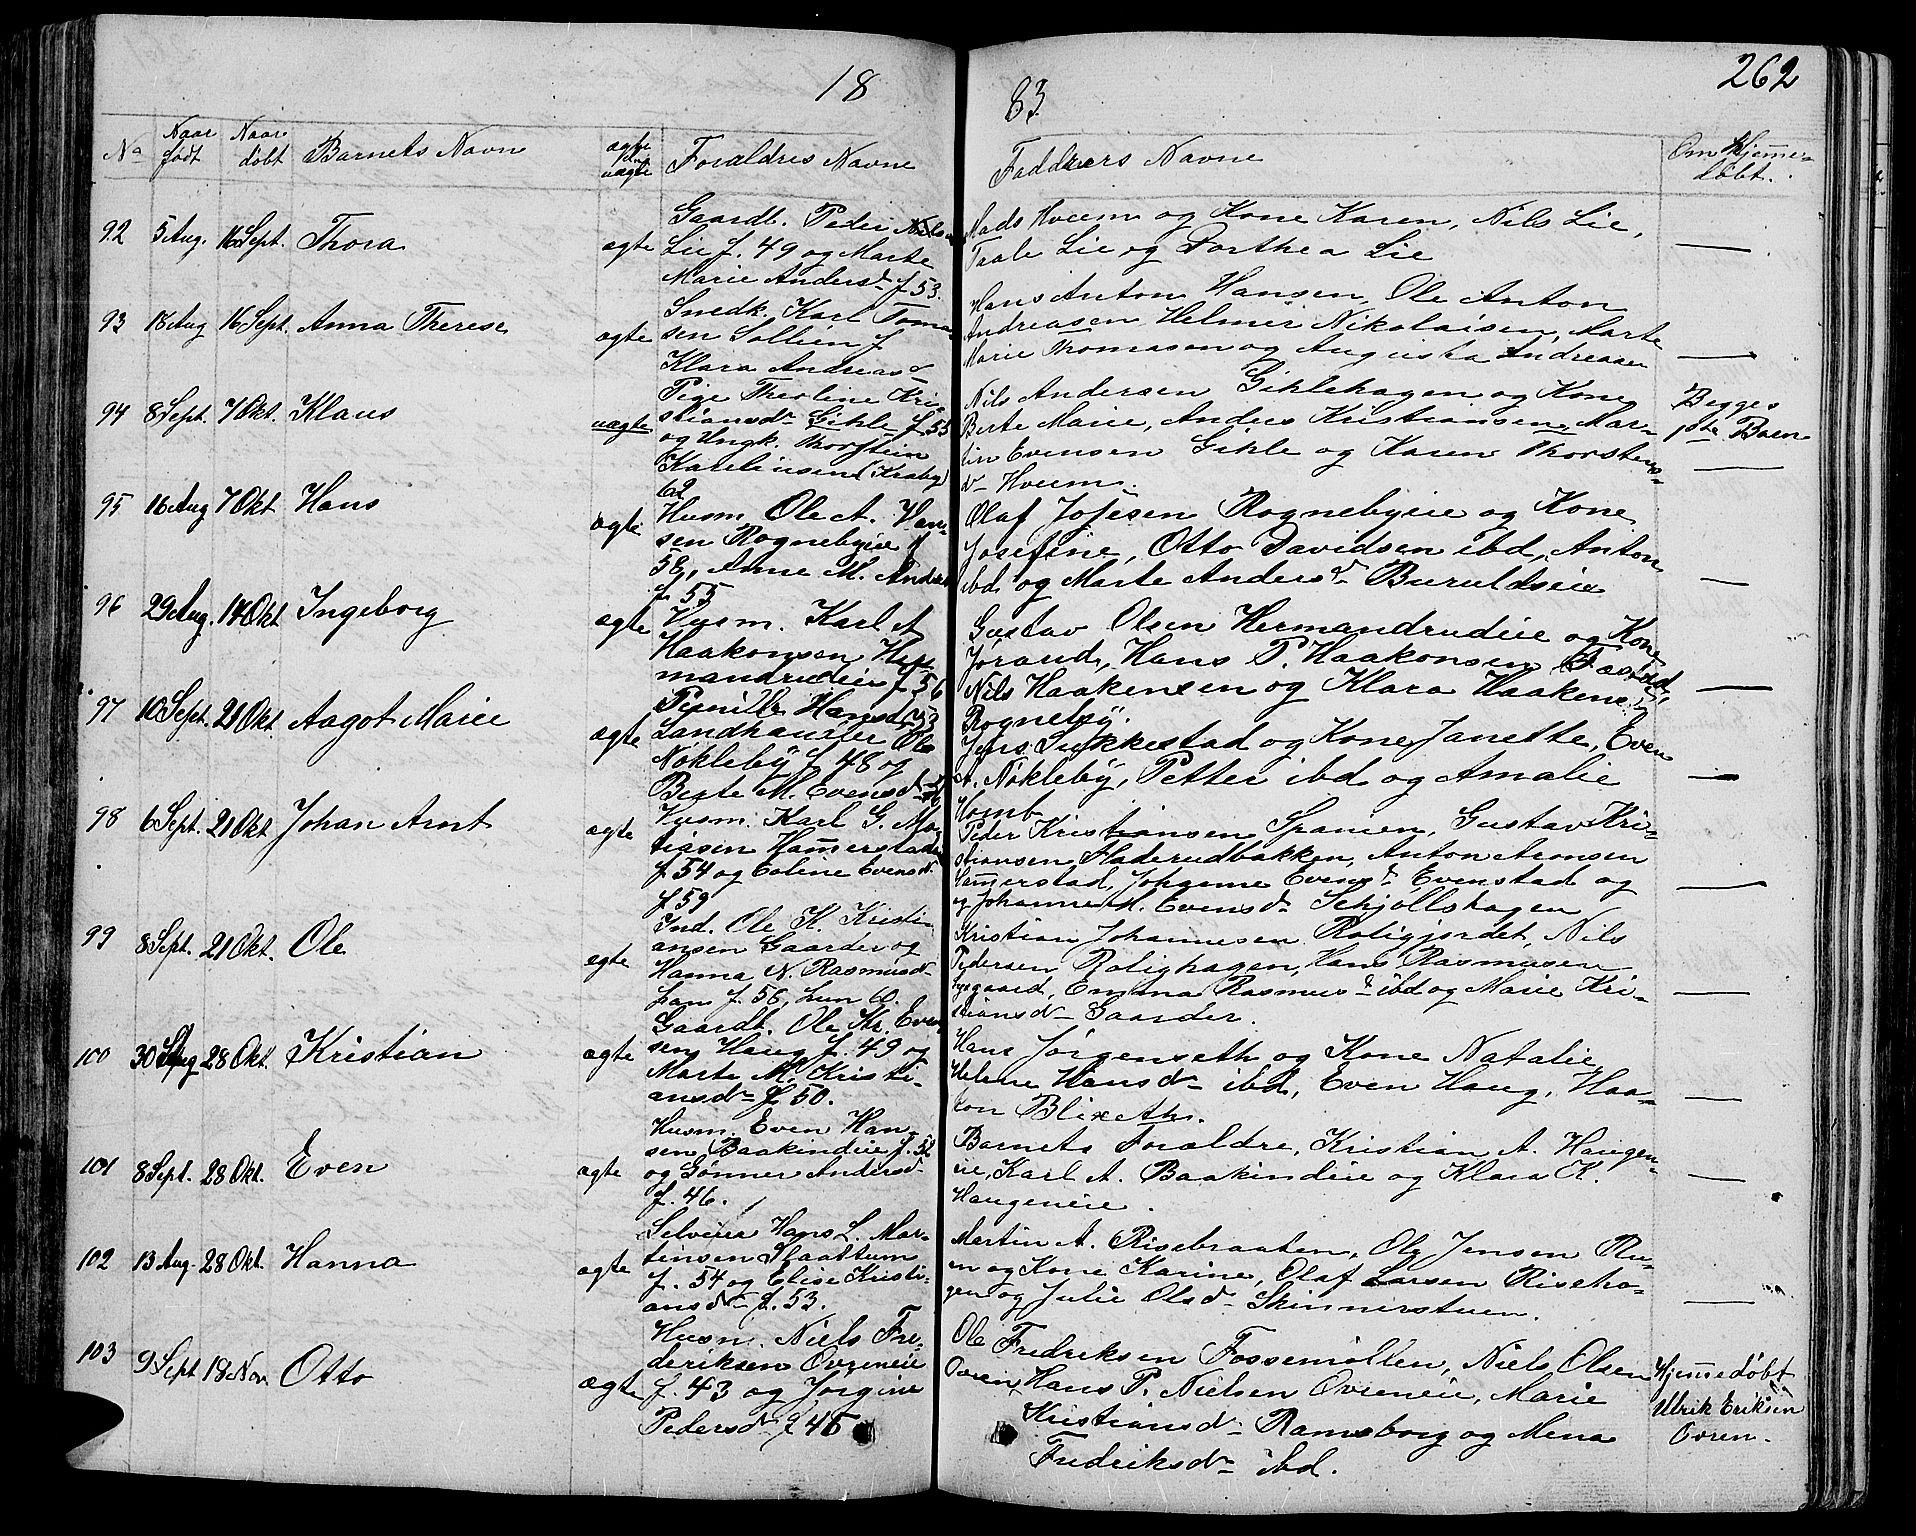 18
83
262
No Naar født Naar døbt Barnets Navn ægte eller uægte Forældres Navne Faddernes Navne Om Hjemmedøbt.
92 5 Aug. 16 Sept. Thora ægte
Gaardb. Peder Nils-
Lie f. 49 og Marte
Marie Andersd. f 53.
Mads Hveem og Kone Karen, Nils Lie,
Lie og Dorthea Lie
—
93 18 Aug 16 Sept. Anna Therese ægte
Snedk. Karl Toma-
sen Sollien f
Klara Andreasd
Hans Anton Hansen, Ole Anton
Andreasen Helmer Nikolaisen, Marte
Marie Thomasen og Augusta Andreasen
—
94 8 Sept. 7 Okt. Klaus uægte
Pige Theoline Kri-
stiansd. Gihle f 55
og Ungk. Thorstein
Karelinsen (Kraby)
62
Nils Andersen Gihlehagen og Kone
Berte Marie, Anders Kristiansen, Mar-
tin Evensen Gihle og Karen Thorstens-
d. Hveem.
Begges
1ste Barn
—
95 16 Aug 7 Okt Hans ægte
Husm. Ole A. Han-
sen Rognebyeie f
58, Anne M. Anders
f. 55
Olaf Josesen Rognebyeie og Kone
Josefine, Otto Davidsen ibd, Anton
ibd og Marte Andersd. Buruldseie
—
96 29 Aug. 14 Okt Ingeborg ægte
Husm. Karl A
Haakonsen Her-
mandrudeie f 56
Pernille Hansd f 53
Gustav Olsen Hermandrudeie og Kone
Jørand, Hans P. Haakonsen Fastad,
Nils Haakensen og Klara Haakens
Rogneby.
—
97 10 Sept. 21 Okt Aagot Marie ægte
Landhandler Ole
Nøkleby f 48 og
Berte M. Evensd
Jens Sukkestad og Kone Janette, Even
A. Nøkleby, Petter ibd og Amalie
Homb
—
98 6 Sept. 21 Okt Johan Arnt ægte
Husm. Karl G. Ma-
tiasen Hammerstad
f. 54 og Eoline Evensd.
f 59
Peder Kristiansen Spanien, Gustav Kri-
stiansen Haderudbakken, Anton Aronsen
Hammerstad, Johanne Evensd. Evenstad og
og Johanne M. Evensd. Schjøllshagen
—
99 8 Sept. 21 Okt. Ole ægte
Ind. Ole K. Kristi-
ansen Gaarder og
Hanna N. Rasmusd.
han f. 56, hun 60.
Kristian Johannesen Roligjordet, Nils
Pedersen Rolighagen, Hans Rasmusen
Lysgaard, Emma Rasmusd. ibd og Marie Kri-
stiansd. Gaarder.
—
100 30 Aug 28 Okt. Kristian ægte
Gaardb. Ole Kr. Even-
sen Haug f. 49 og
Marte M. Kristi-
ansd. f 50.
Hans Jørgenseth og Kone Natalie,
Helene Hansd. ibd, Even Haug, Haa-
kon Blixeth.
—
101 8 Sept. 28 Okt. Even ægte
Husm. Even Han-
sen Baakindeie f. 52
og Gønner Andersd.
f. 46.
Barnets Forældre, Kristian A. Haugen-
eie, Karl A. Baakindeie og Klara K.
Haugeneie.
—
102 13 Aug. 28 Okt. Hanna ægte
Selveier Hans L. Mar-
tinsen Slaattum
f. 54 og Elise Kristi-
ansd. f. 53.
Martin A. Risebraaten, Ole Jensen Ru-
en og Kone Karine, Olaf Larsen Riseha-
gen og Julie Olsd. Skinnerstuen.
—
103 9 Sept 18 Nov Otto ægte
Husm. Niels Fre-
deriksen Ovreneie
f. 43 og Jørgine
Pedersd. f 45
Ole Fredriksen Fossemøllen, Niels Olsen
Ovren, Hans P. Nielsen Ovreneie, Marie
Kristiansd. Ramsborg og Mina
Fredriksd. ibd.
Hjemmedøbt
Ulrik Eriksen
Ovren.